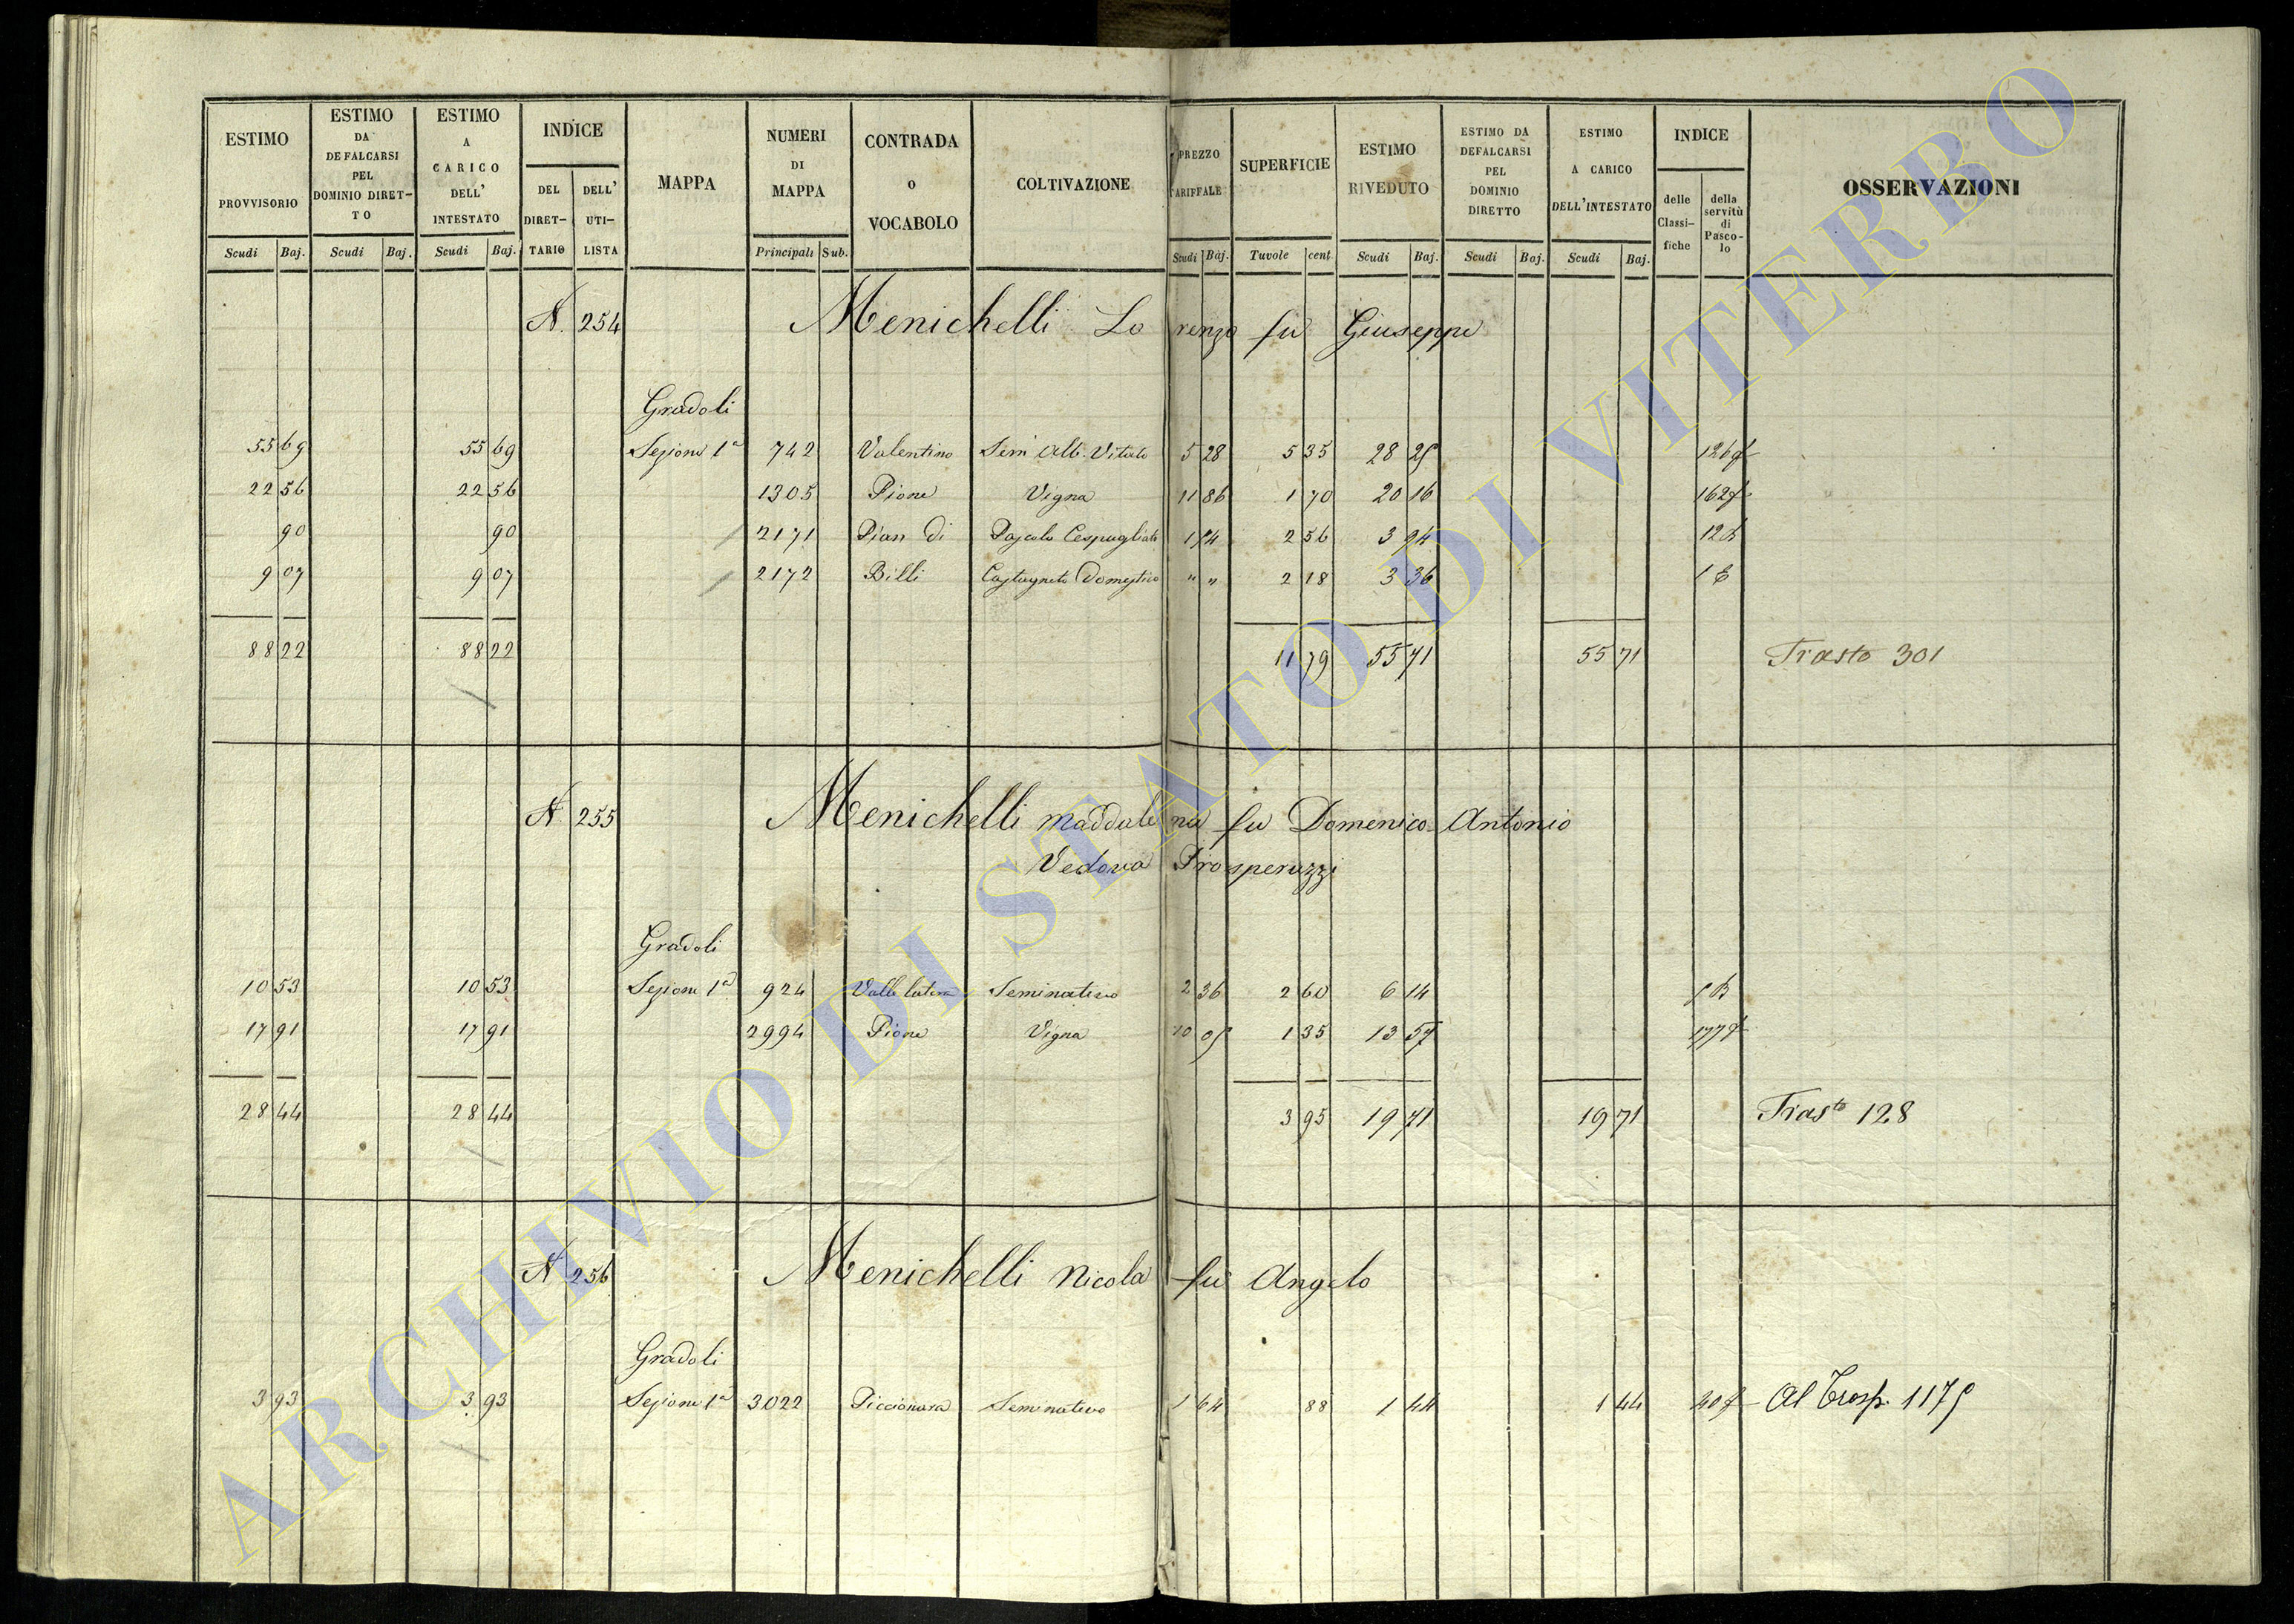 ESTIMO PROVVISORIO Scudi Baj.
ESTIMO DA DEFALCARSI PEL DOMINIO DIRET-TO Scudi Baj.
ESTIMO A CARICO DELL' INTESTATO Scudi Baj.
INDICE DEL DIRET-TARIO DELL' UTI-LISTA
MAPPA
NUMERI DI MAPPA Principali Sub.
CONTRADA O VOCABOLO
COLTIVAZIONE
PREZZO TARIFFALE Scudi Baj.
SUPERFICIE Tavole cent
ESTIMO RIVEDUTO Scudi Baj.
ESTIMO DA DEFALCARSI PEL DOMINIO DIRETTO Scudi Baj.
ESTIMO A CARICO DELL'INTESTATO Scudi Baj.
INDICE delle Classi-fiche della servitù di Pasco-lo
OSSERVAZIONI
N. 254 Menichelli Lorenzo fu Giuseppe
Gradoli
55 69 55 69 Sezione 1a 742 Valentino Sem Alb. Vitato 5 28 5 35 28 25
22 56 22 56 1305 Pione Vigna 11 86 1 70 20 16
90 90 2171 Pian di Pascolo Cespugliato 2 56
9 07 9 07 2172 Billi Castagneto Domestico " " 2 18 3 36
88 22 88 22 11 79 55 71 55 71 Trasto 301
N. 255 Menichelli Maddalena fu Domenico Antonio
Vedova Prosperuzzi
Gradoli
10 53 10 53 Sezione 1a 924 Valle latera Seminativo 2 36 2 60 6 14
17 91 17 91 2994 Pione Vigna 10 05 1 35 13 57
28 44 28 44 3 95 19 71 19 71 Trasto 128
N. 256 Menichelli Nicola fu Angelo
Gradoli
3 93 3 93 Sezione 1a 3022 Piccionara Seminativo 1 64 88 1 44 1 44 Al Trasp. 1175
ARCHIVIO DI STATO DI VITERBO